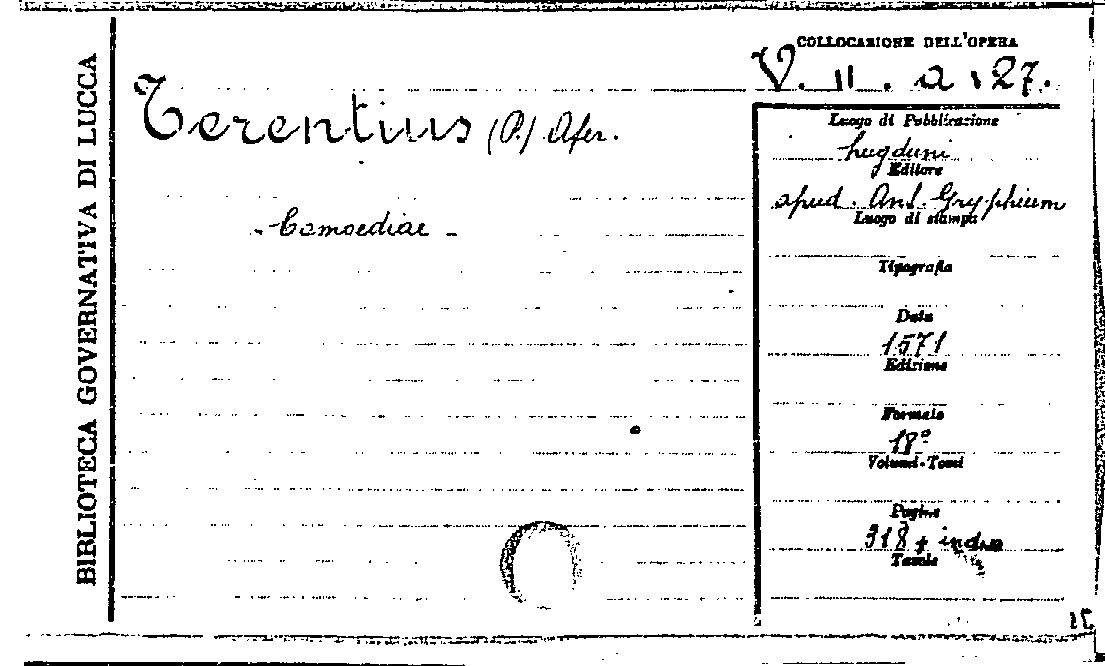 BIBLIOTECA GOVERNATIVA DI LUCCA
COLLOCAZIONE DELL'OPERA
V. II. a. 27.
Terentius (P.) Afer.
- Comoediae -
Luogo di Pubblicazione
Lugduni
Editore
apud. Ant. Gryphium
Luogo di stampa
Tipografia
Data
1571
Edizione
Formato
18º
Volumi-Tomi
Pagine
318 + index
Tavole